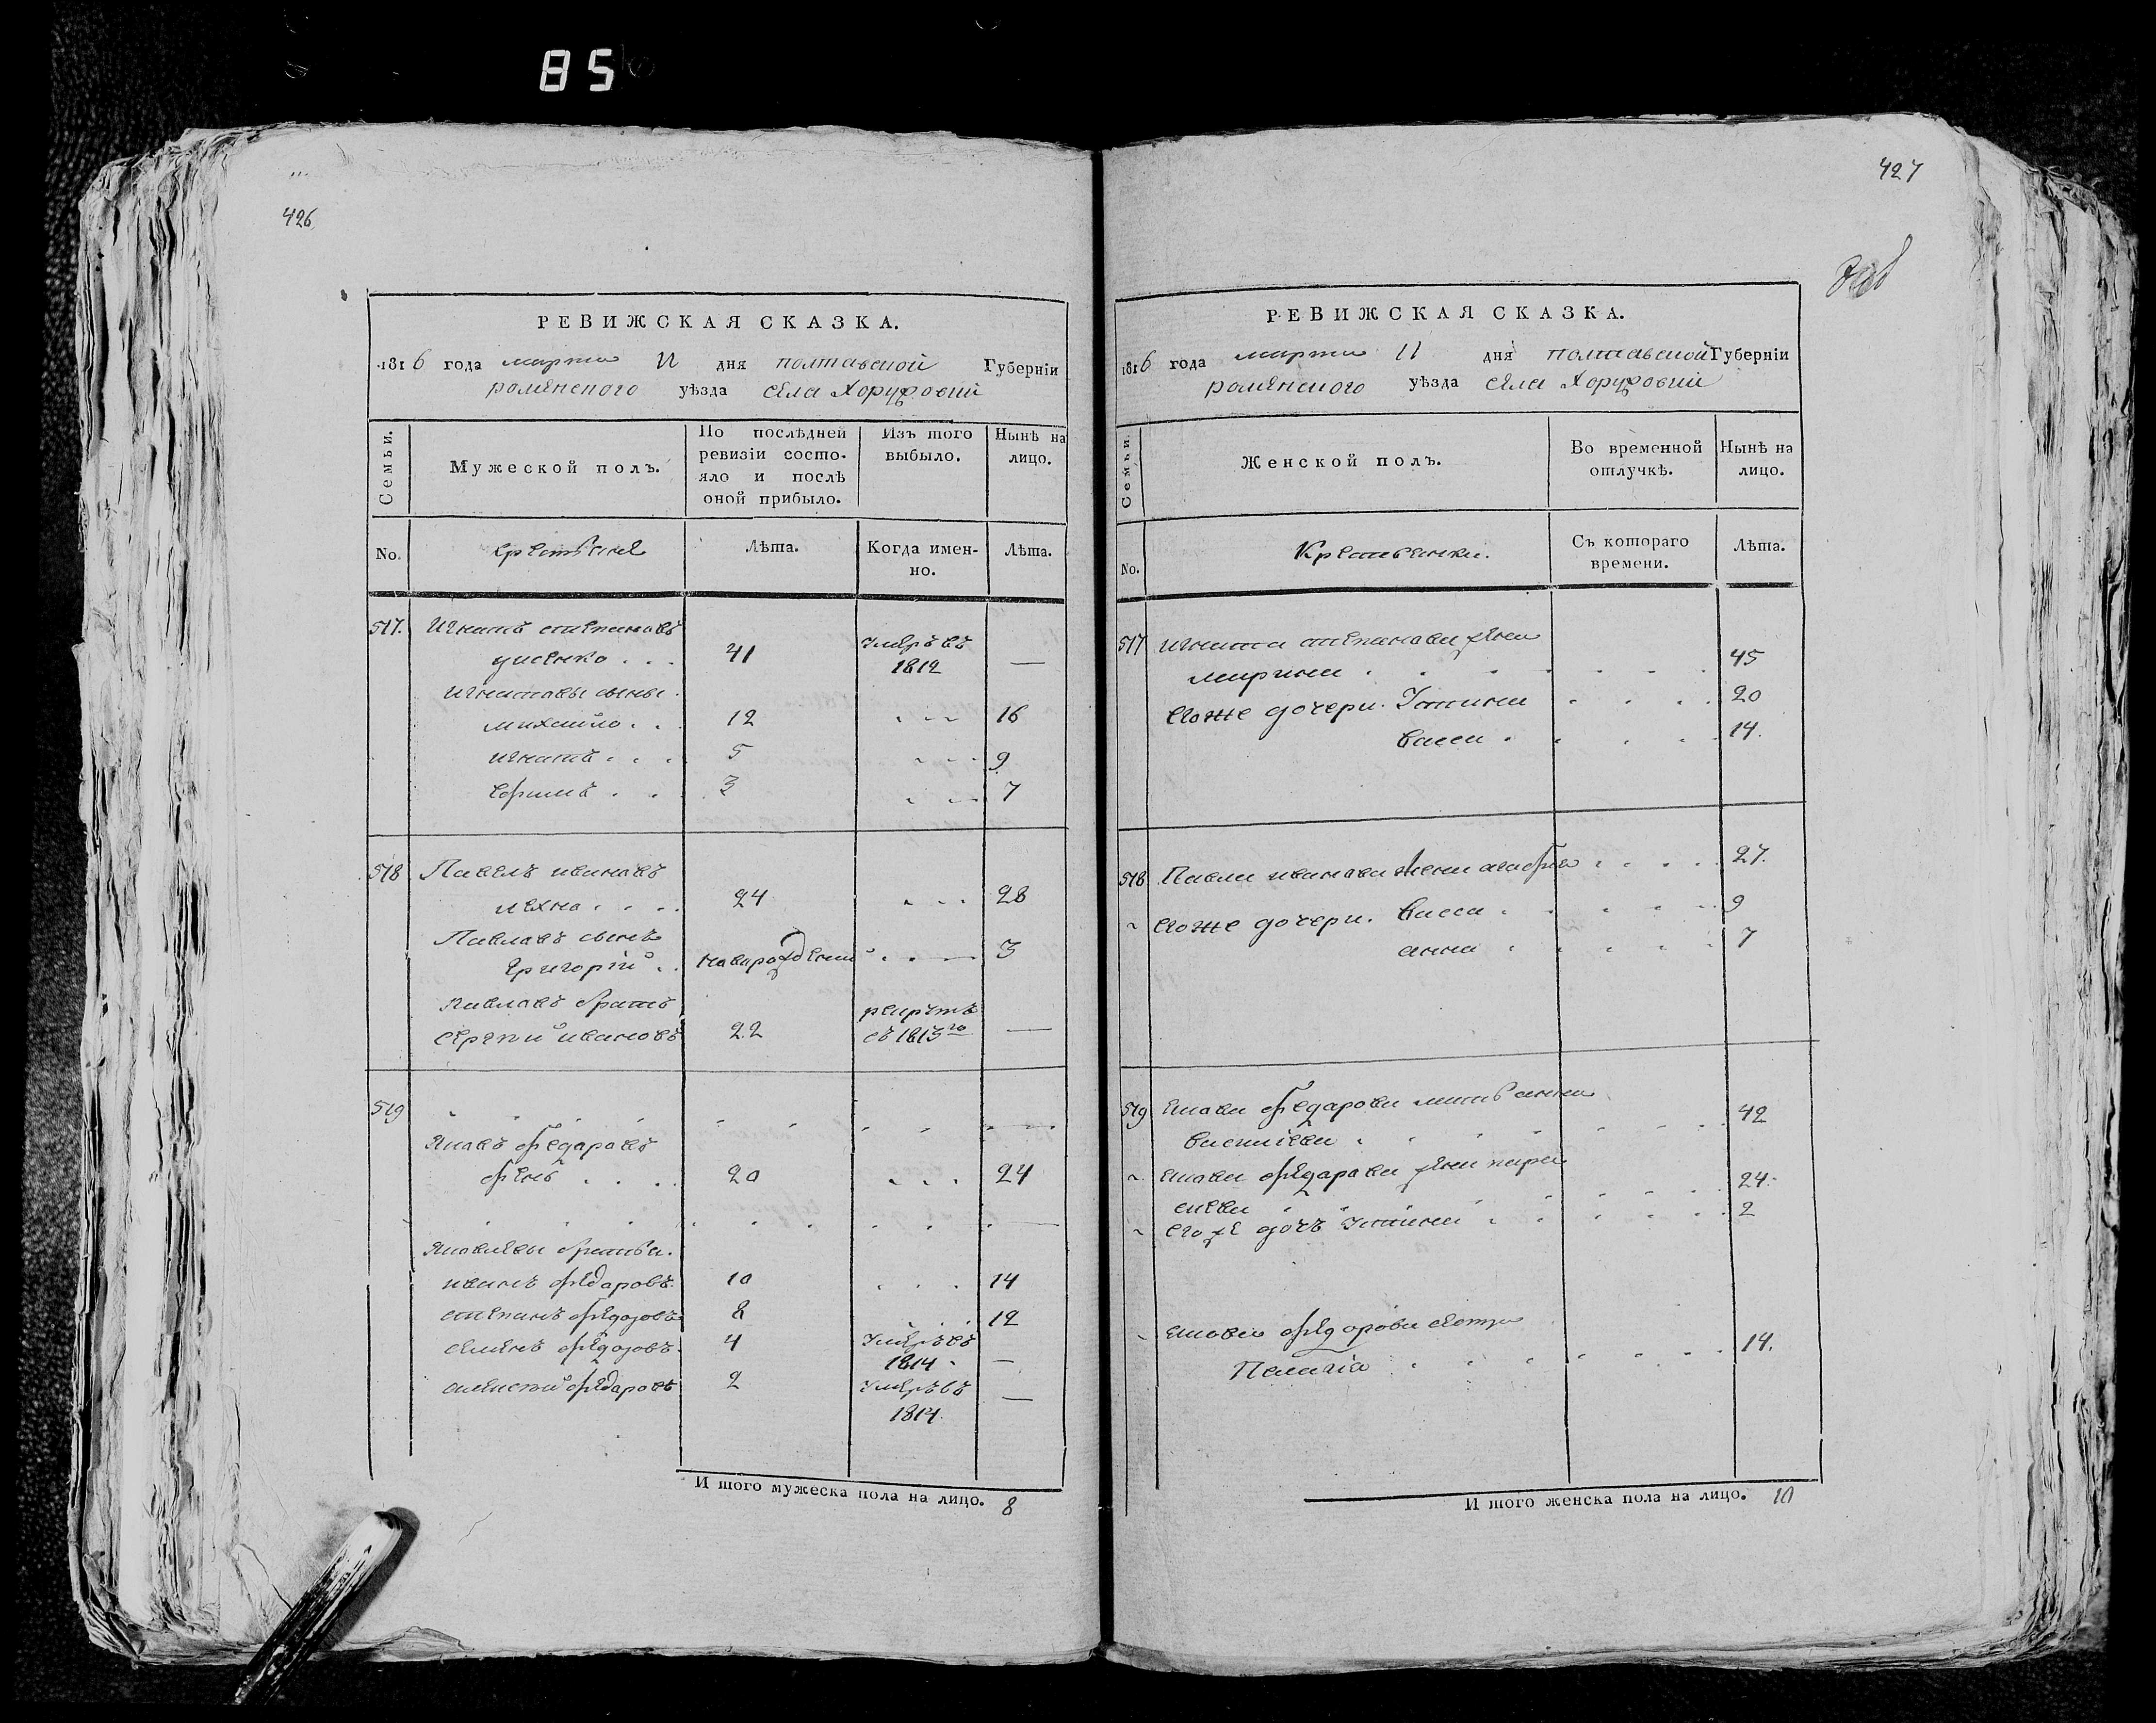 85
426
РЕВИЖСКАЯ СКАЗКА.
1816 года марта 11 дня полтавской Губерніи
роменского уѣзда села Хоружовки
Семьи.
Мужеской полъ.
По послѣдней ревизіи состо-
яло и послѣ
оной прибыло.
Изъ того
выбыло.
Нынѣ на
лицо.
No.
крестьяне
Лѣта.
Когда имен-
но.
Лѣта.
517. Игнатъ степановъ
усенко . . . 41 Умеръ въ 1812 —
игнатовы сыны .
михайло . . 12 16
игнатъ . . . 5 9
ефимъ . . 3 7
518 Павелъ ивановъ
лехно . . . . 24 28
Павловъ сынъ
григорій . . новорожденый 3
павловъ братъ
сергѣй ивановъ 22 рекрутъ съ 1813го —
519
Яковъ федоровъ
фень . . . . 20 24
яковлевы братья.
иванъ федоровъ 10 14
степанъ федоровъ 8 12
семенъ федоровъ 4 Умеръ въ 1814 —
алексѣй федоровъ 2 Умеръ въ 1814. —
И того мужеска пола на лицо. 8
427
РЕВИЖСКАЯ СКАЗКА.
1816 года марта 11 дня полтавской Губерніи
роменского уѣзда села Хоружовки
Семьи.
Женской полъ.
Во временной
отлучкѣ.
Нынѣ на
лицо.
No.
Крестьянки.
Съ котораго
времени.
Лѣта.
517 игната степанова жена
марина . 45
егоже дочери. Устина 20
васса . 14.
518 Павла иванова жена агафія 27.
егоже дочери. васса . 9
анна 7
519 якова федорова мать анна
васильева . 42
якова федорова жена пара
скева 24.
его же дочь Устина 2
якова федорова сестра
Пелагія 14.
И того женска пола на лицо. 10